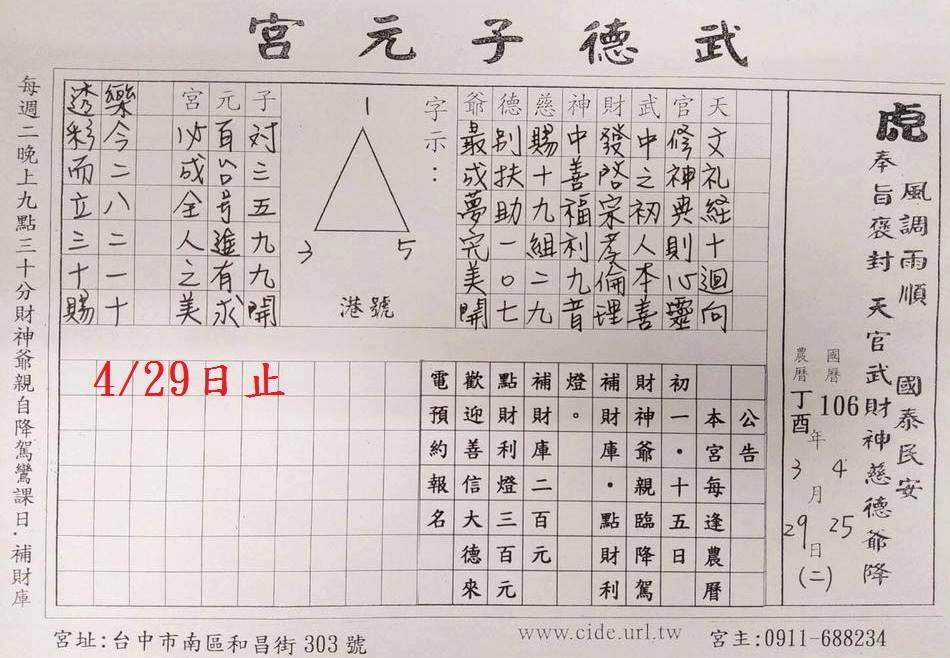 武德子元宮
虎
風調雨順 國泰民安
奉旨褒封 天官武財神慈德爺降
國曆 106 年 4 月 25 日 (二)
農曆 丁酉 3 29
天文礼経十迴向
官修神典則心靈
武中之初人本善
財發啓宗孝倫理
神中善福利九音
慈賜十九組二九
德别扶助一〇七
爺最成夢完美開
字示：
1
3 5
港號
子対三五九九開
元百以号進有求
宮必成全人之美
樂今二八二一十
透彩而立三十賜
公告
本宮每逢農曆
初一・十五日
財神爺親臨降駕
補財庫・點財利
燈。
補財庫二百元
點財利燈三百元
歡迎善信大德來
電預約報名
4/29日止
每週二晚上九點三十分財神爺親自降駕鸞課日．補財庫
宮址:台中市南區和昌街303號
www.cide.url.tw
宮主:0911-688234